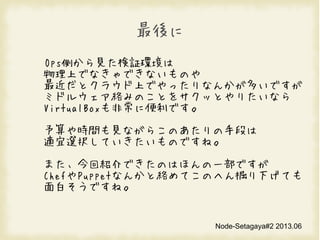 最後に
Ops側から見た検証環境は
物理上でなきゃできないものや
最近だとクラウド上でやったりなんかが多いですが
ミドルウェア絡みのことをサクッとやりたいなら
VirtualBoxも非常に便利です。
予算や時間も見ながらこのあたりの手段は
適宜選択していきたいものですね。
また、今回紹介できたのはほんの一部ですが
ChefやPuppetなんかと絡めてこのへん掘り下げても
面白そうですね。
Node-Setagaya#2 2013.06